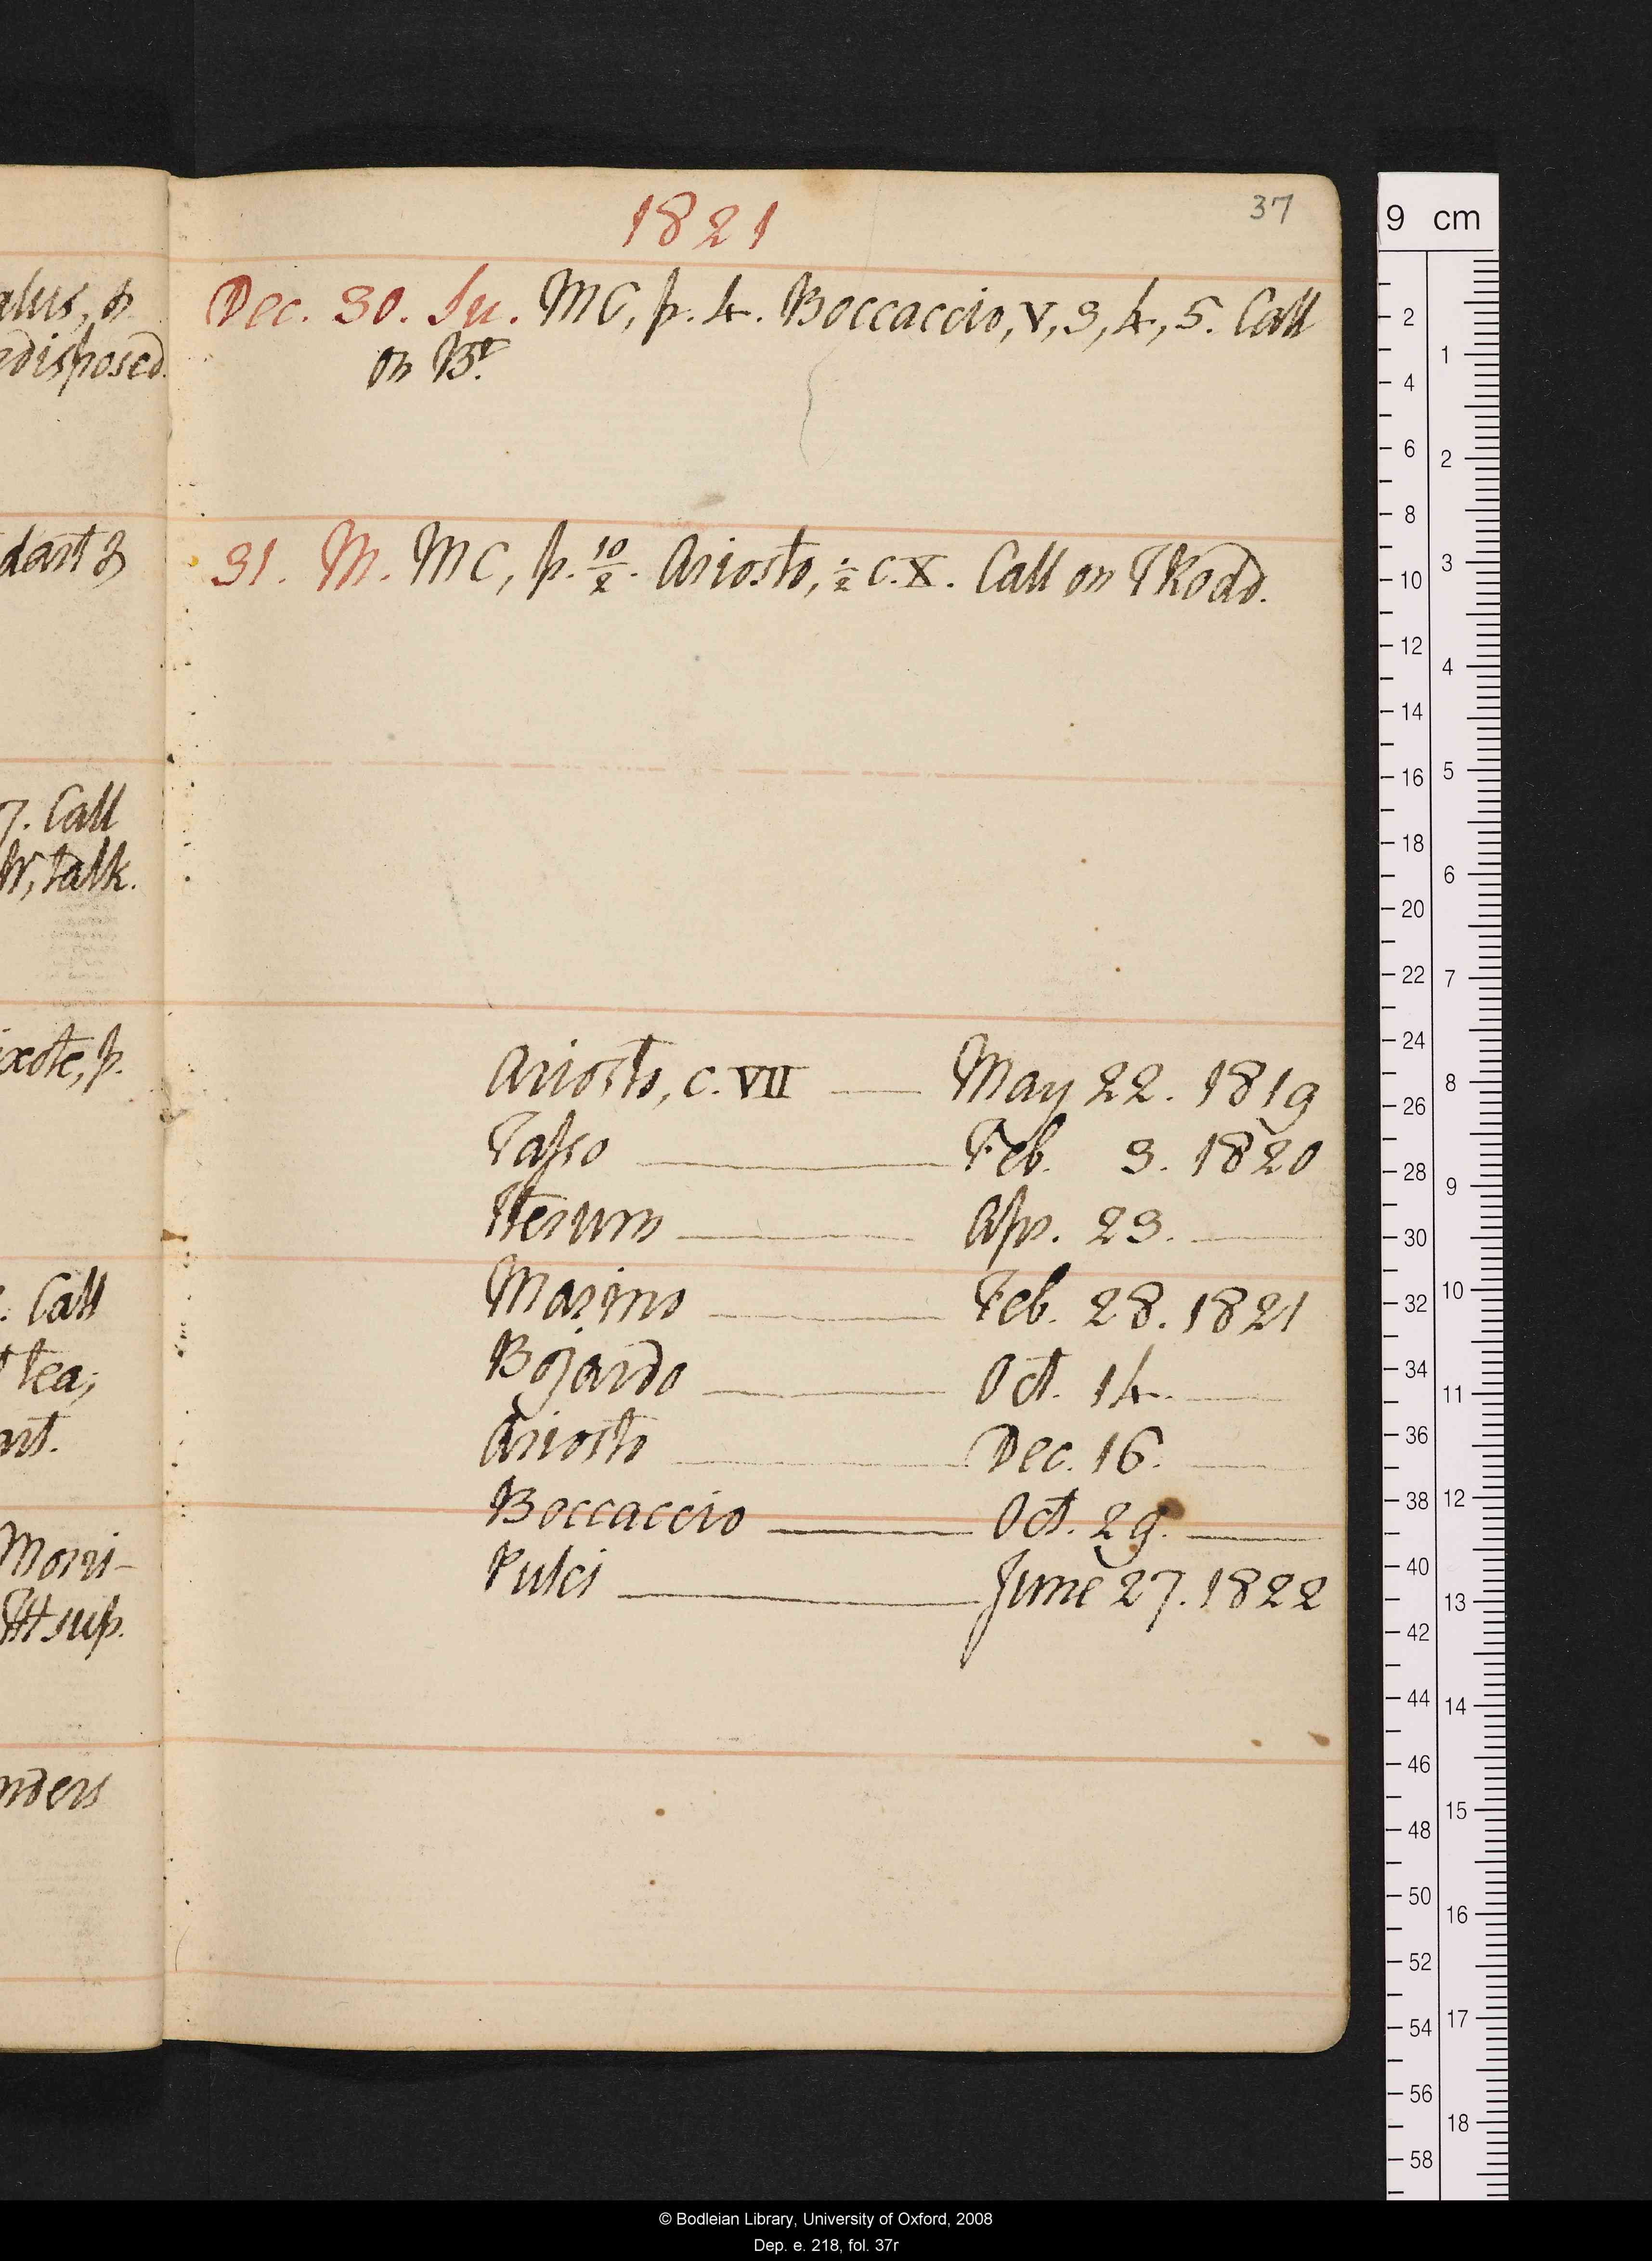 1821
37
Dec. 30. Su. MC, p. 4. Boccaccio, V, 3, 4, 5. Call
on Bt.
31. M. MC, p. 10/2. Ariosto, ½ C. X. Call on TRodd.
Ariosto, C. VII — May 22. 1819
Tasso — Feb. 3. 1820
Iterum — Apr. 23. —
Marino — Feb. 28. 1821
Bojardo — Oct. 14. —
Ariosto — Dec. 16. —
Boccaccio — Oct. 29. —
Pulci — June 27. 1822
alus, p
disposed.
dart &
7. Call
W, talk.
ixote, p.
. Call
tea;
art.
Morri-
sup.
nders
9 cm
2
4
6
8
10
12
14
16
18
20
22
24
26
28
30
32
34
36
38
40
42
44
46
48
50
52
54
56
58
1
2
3
4
5
6
7
8
9
10
11
12
13
14
15
16
17
18
© Bodleian Library, University of Oxford, 2008
Dep. e. 218, fol. 37r